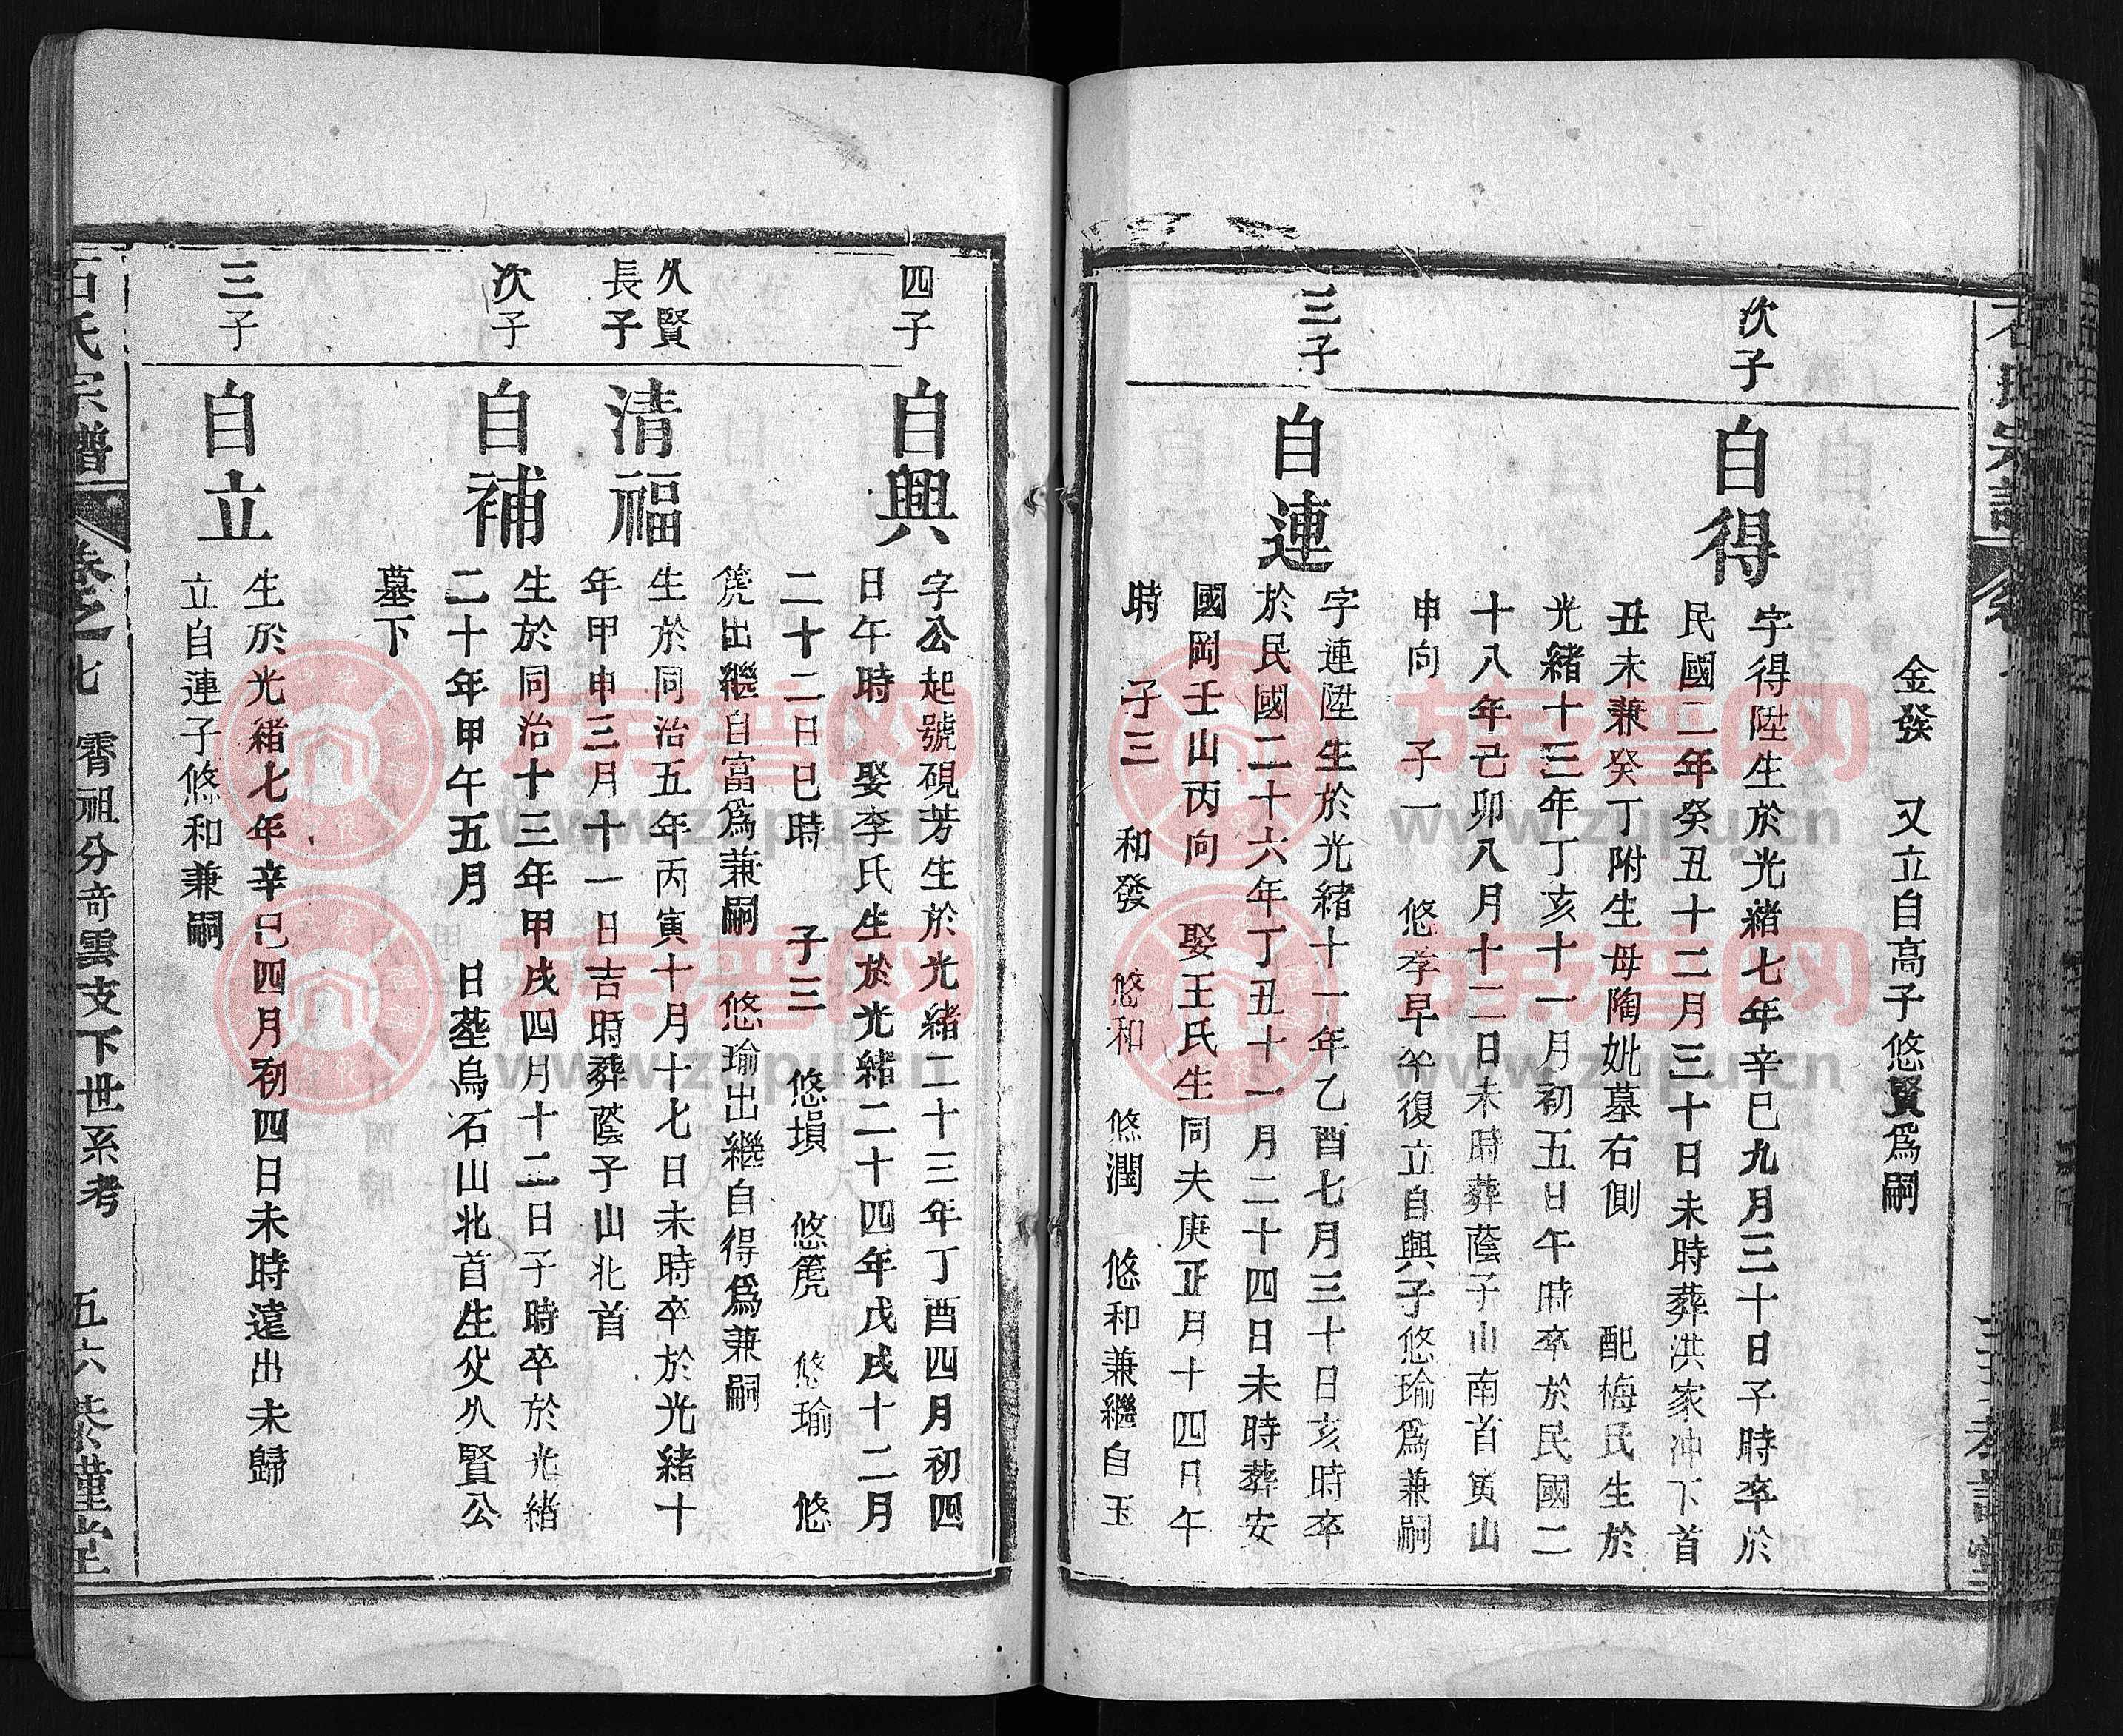 金發　又立自高子悠賢爲嗣
次子
自得
字得陞生於光緒七年辛巳九月三十日子時卒於
民國二年癸丑十二月三十日未時葬洪家冲下首
丑未兼癸丁附生母陶妣墓右側　配梅氏生於
光緒十三年丁亥十一月初五日午時卒於民國二
十八年己卯八月十二日未時葬蔭子山南首寅山
申向　子一　悠孝早卒復立自興子悠瑜爲兼嗣
三子
自連
字連陞生於光緒十一年乙酉七月三十日亥時卒
於民國二十六年丁丑十一月二十四日未時葬安
國岡壬山丙向　娶王氏生同夫庚正月十四日午
時　子三　和發　悠和　悠潤　悠和兼繼自玉
四子
自興
字公起號硯芳生於光緒二十三年丁酉四月初四
日午時　娶李氏生於光緒二十四年戊戌十二月
二十二日巳時　子三　悠塤　悠箎　悠瑜　悠
箎出繼自富爲兼嗣　悠瑜出繼自得爲兼嗣
久賢
長子
清福
生於同治五年丙寅十月十七日未時卒於光緒十
年甲申三月十一日吉時葬蔭子山北首
次子
自補
生於同治十三年甲戌四月十二日子時卒於光緒
二十年甲午五月　日葬烏石山北首生父久賢公
墓下
三子
自立
生於光緒七年辛巳四月初四日未時遠出未歸
立自連子悠和兼嗣
石氏宗譜　卷之七　霄祖分奇雲支下世系考　五六